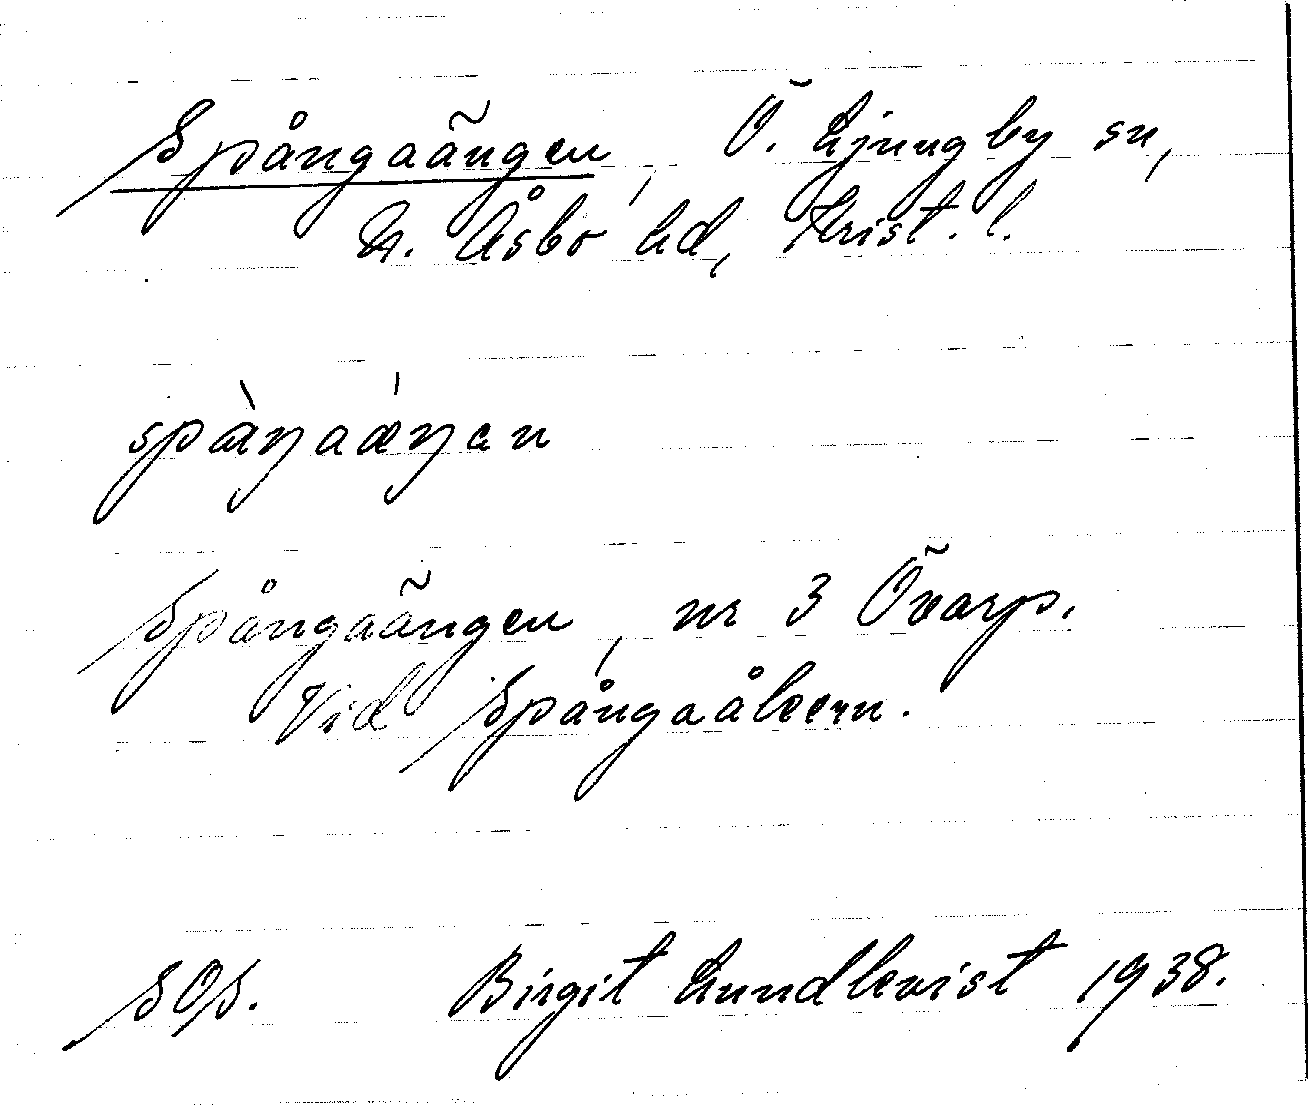 Spångaängen, Ö. Ljungby sn,
N. Åsbo hd, Krist. l.
spàŋaǽŋen
Spångaängen, nr 3 Övarp.
Vid Spångaåkern.
SOS. Birgit Lundkvist 1938.